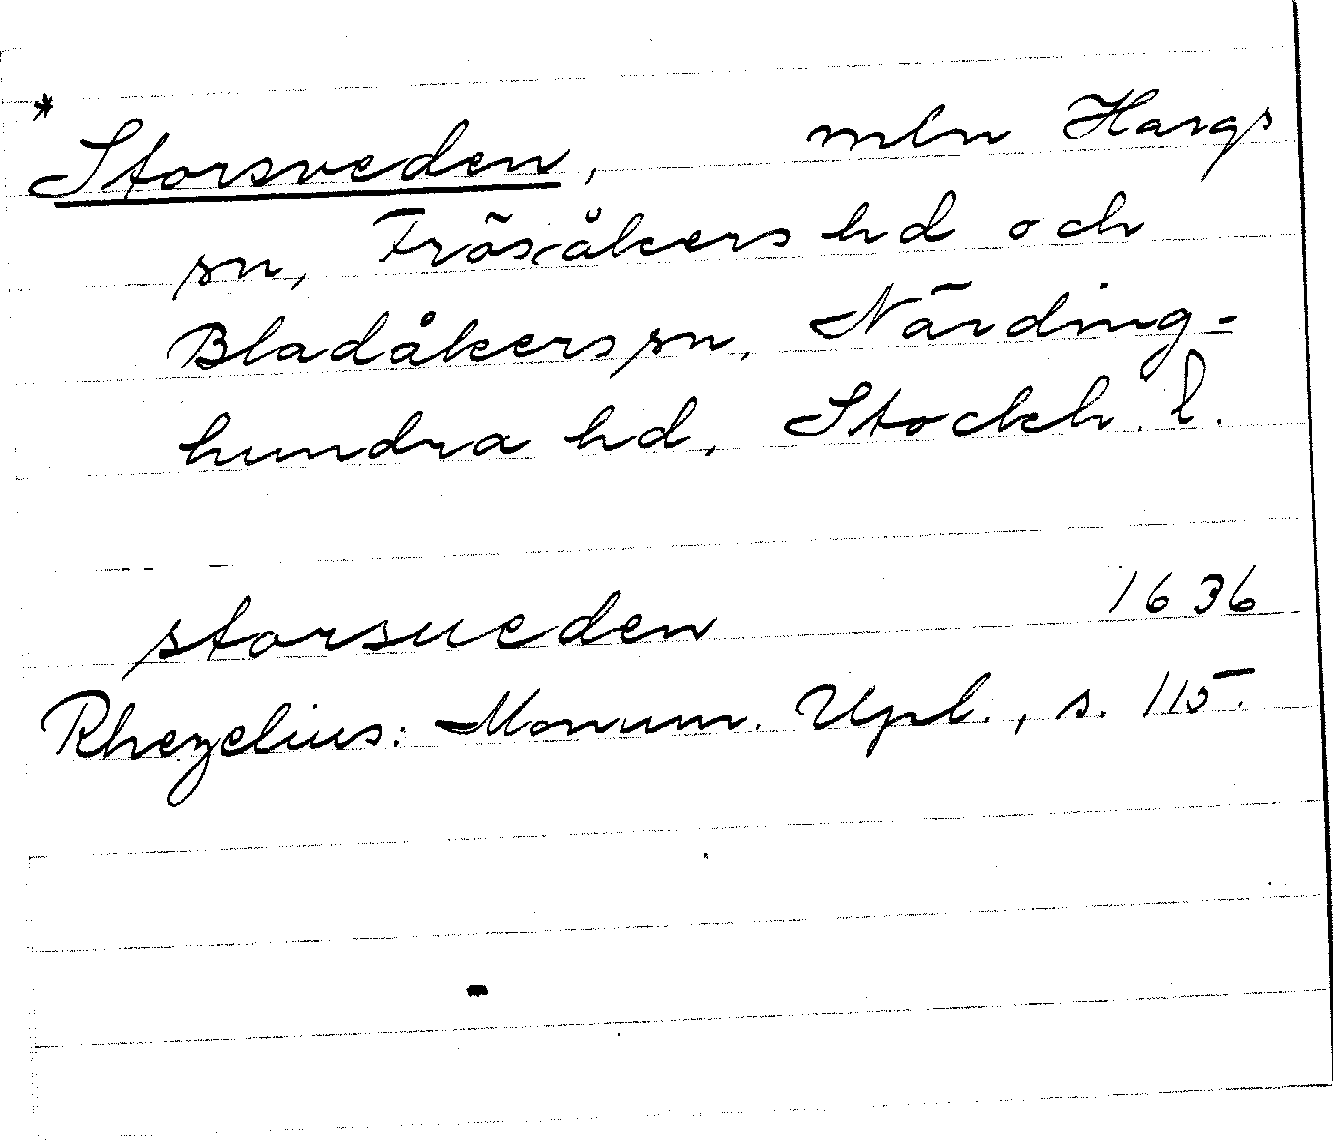 * Storsveden, mln Hargs
sn, Frösåkers hd och
Bladåkers sn, Närding-
hundra hd, Stockh. l.
storsueden 1636
Rhezelius: Monum. Upl., s. 115.